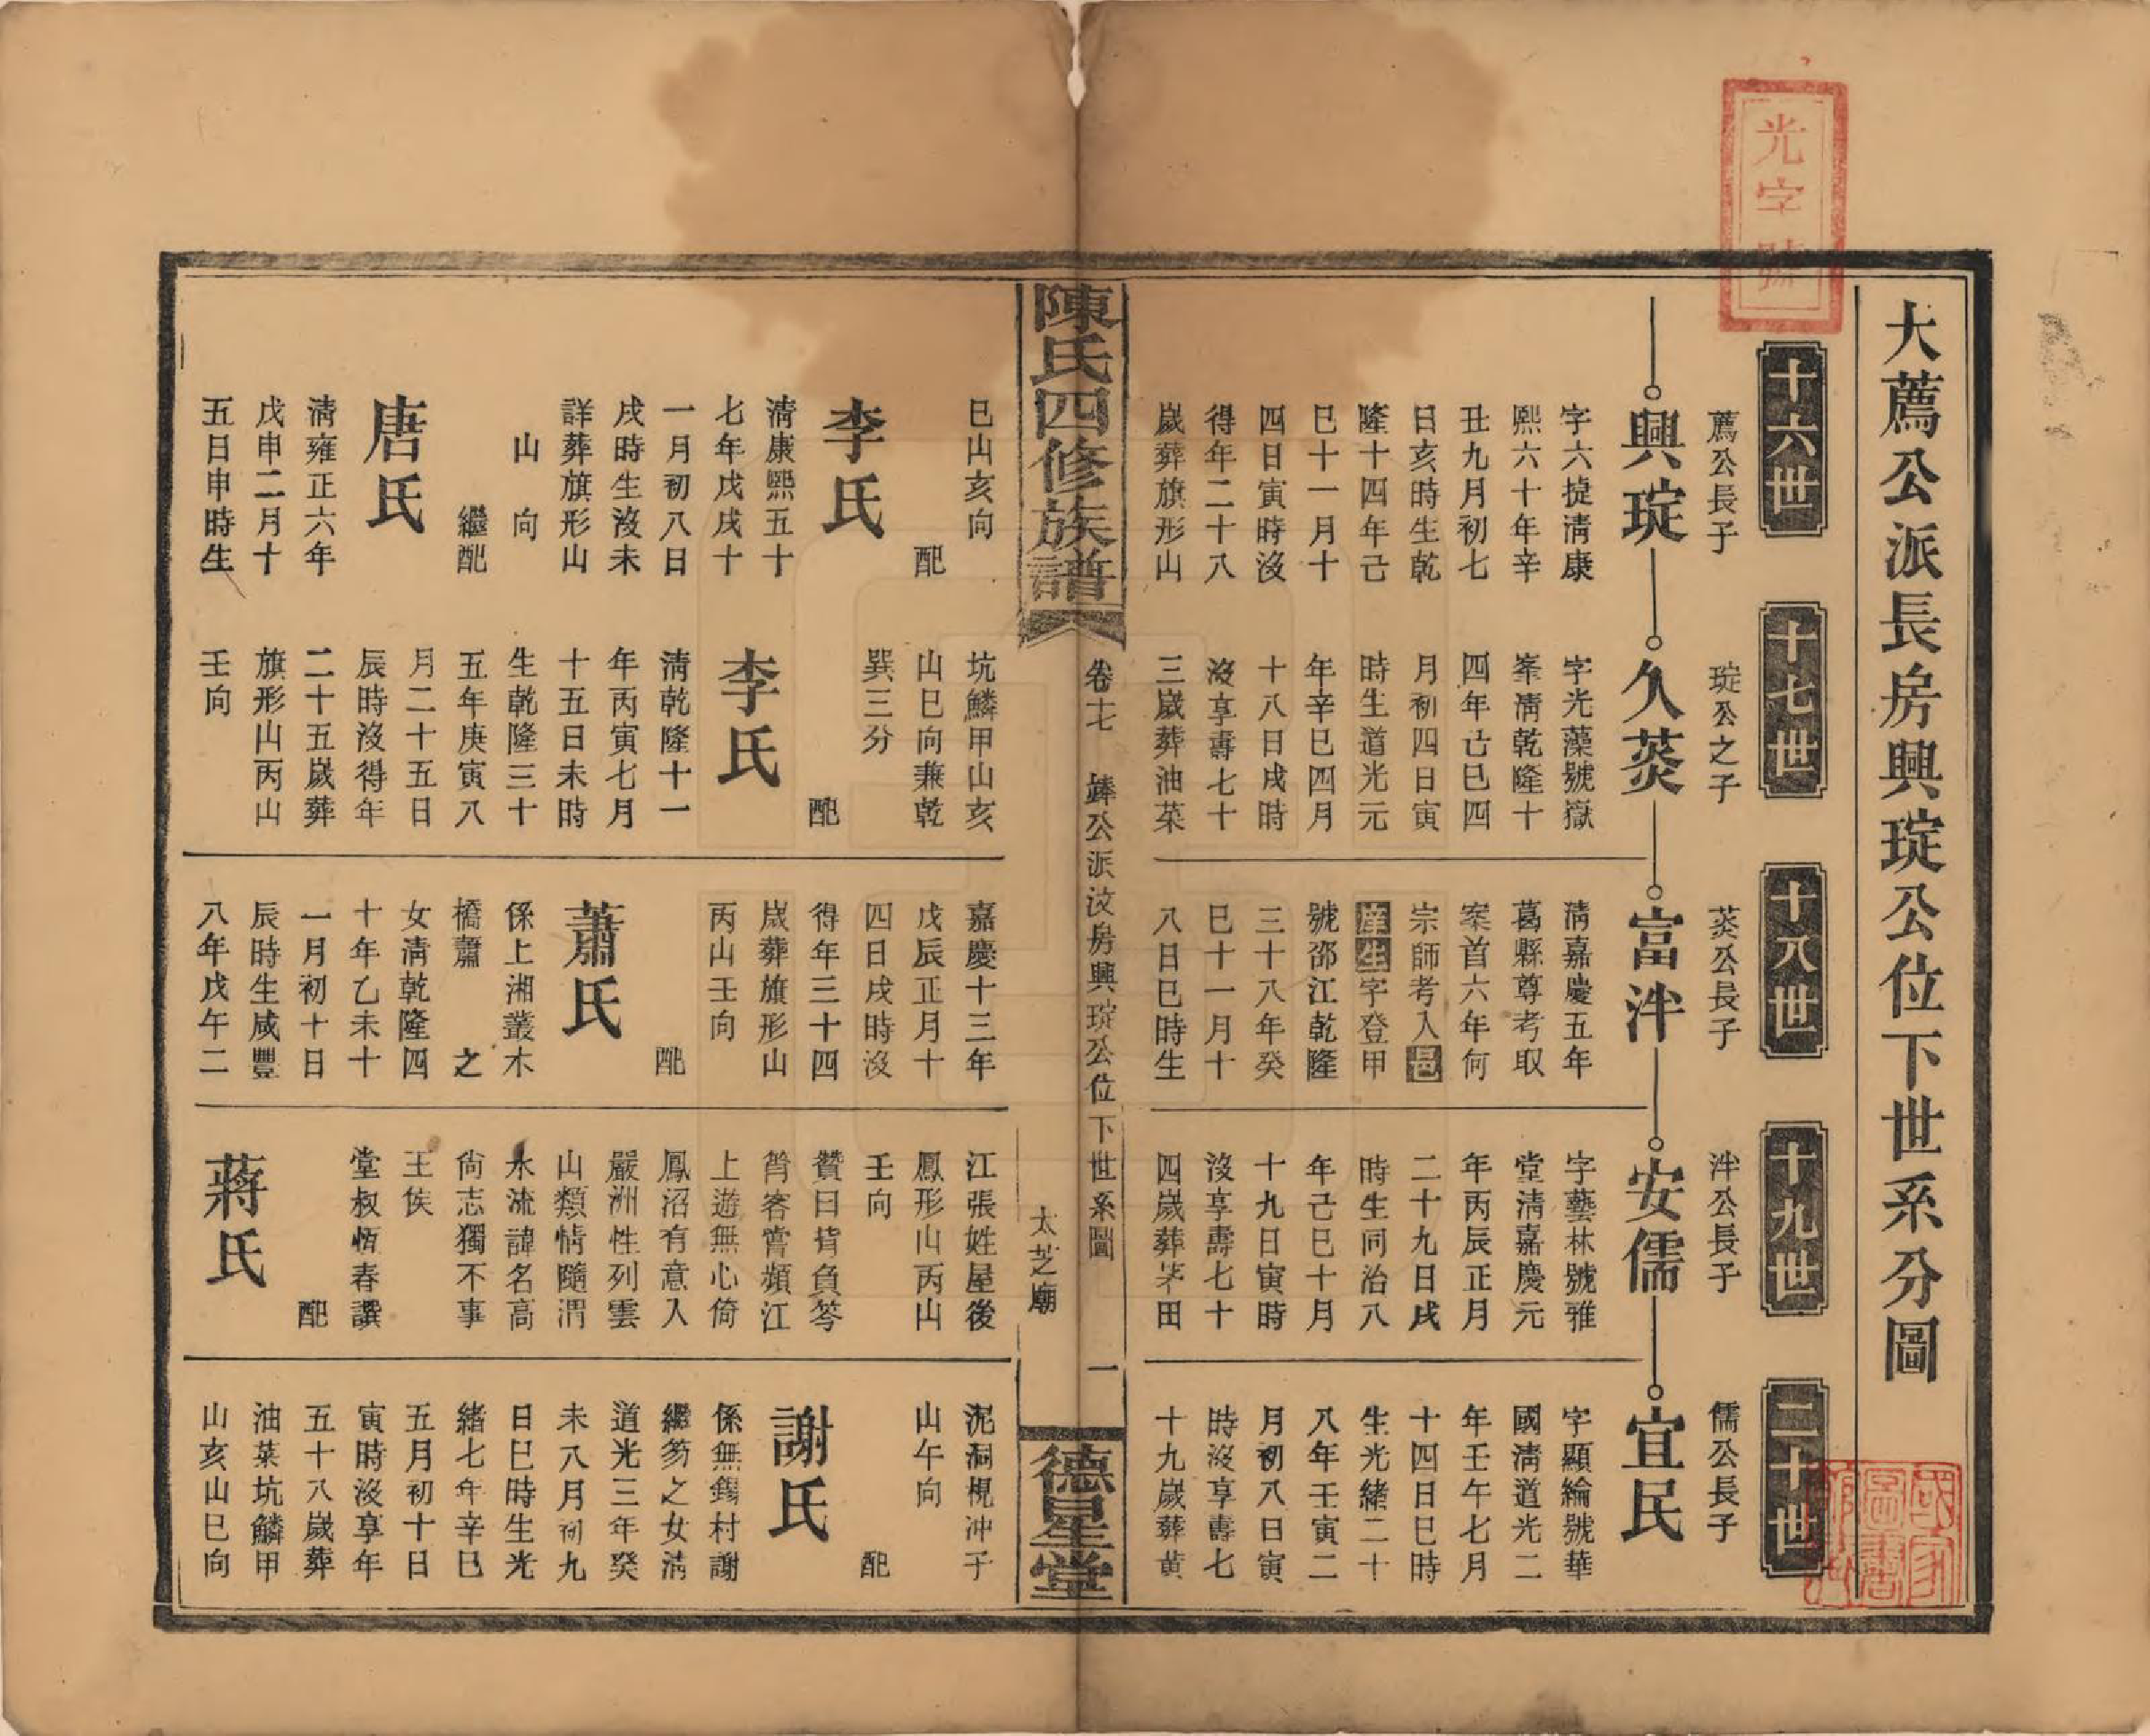 大薦公派長房興琁公位下世系分圖
十六世
十七世
十八世
十九世
二十世
薦公長子
興琁
字六掟清康
熙六十年辛
丑九月初七
日亥時生乾
隆十四年己
巳十一月十
四日寅時沒
得年二十八
歲葬旗形山
巳山亥向
配
李氏
清康熙五十
七年戊戌十
一月初八日
戌時生沒未
詳葬旗形山
山向
繼配
唐氏
清雍正六年
戊申二月十
五日申時生
琁公之子
久菼
字光藻號嶽
峯清乾隆十
四年己巳四
月初四日寅
時生道光元
年辛巳四月
十八日戌時
沒享壽七十
三歲葬油菜
坑鱗甲山亥
山巳向兼乾
巽三分
配
李氏
清乾隆十一
年丙寅七月
十五日未時
生乾隆三十
五年庚寅八
月二十五日
辰時沒得年
二十五歲葬
旗形山丙山
壬向
菼公長子
富泮
清嘉慶五年
葛縣尊考取
案首六年何
宗師考入邑
庠生字登甲
號邵江乾隆
三十八年癸
巳十一月十
八日巳時生
嘉慶十三年
戊辰正月十
四日戌時沒
得年三十四
歲葬旗形山
丙山壬向
配
蕭氏
係上湘叢木
橋蕭 之
女清乾隆四
十年乙未十
一月初十日
辰時生咸豐
八年戊午二
泮公長子
安儒
字藝林號雅
堂清嘉慶元
年丙辰正月
二十九日戌
時生同治八
年己巳十月
十九日寅時
沒享壽七十
四歲葬茅田
江張姓屋後
鳳形山丙山
壬向
贊曰背負笭
筲客嘗頻江
上遊無心倚
鳳沼有意入
嚴洲性列雲
山類情隨渭
水流諱名高
尚志獨不事
王侯
堂叔恆春譔
配
蔣氏
儒公長子
宜民
字顯綸號華
國清道光二
年壬午七月
十四日巳時
生光緒二十
八年壬寅二
月初八日寅
時沒享壽七
十九歲葬黃
泥洞梘冲子
山午向
配
謝氏
係無錫村謝
繼芴之女清
道光三年癸
未八月初九
日巳時生光
緒七年辛巳
五月初十日
寅時沒享年
五十八歲葬
油菜坑鱗甲
山亥山巳向
陳氏四修族譜
卷十七 鏲公派汶房興琁公位下世系圖 一
太芝廟
德星堂
光字號